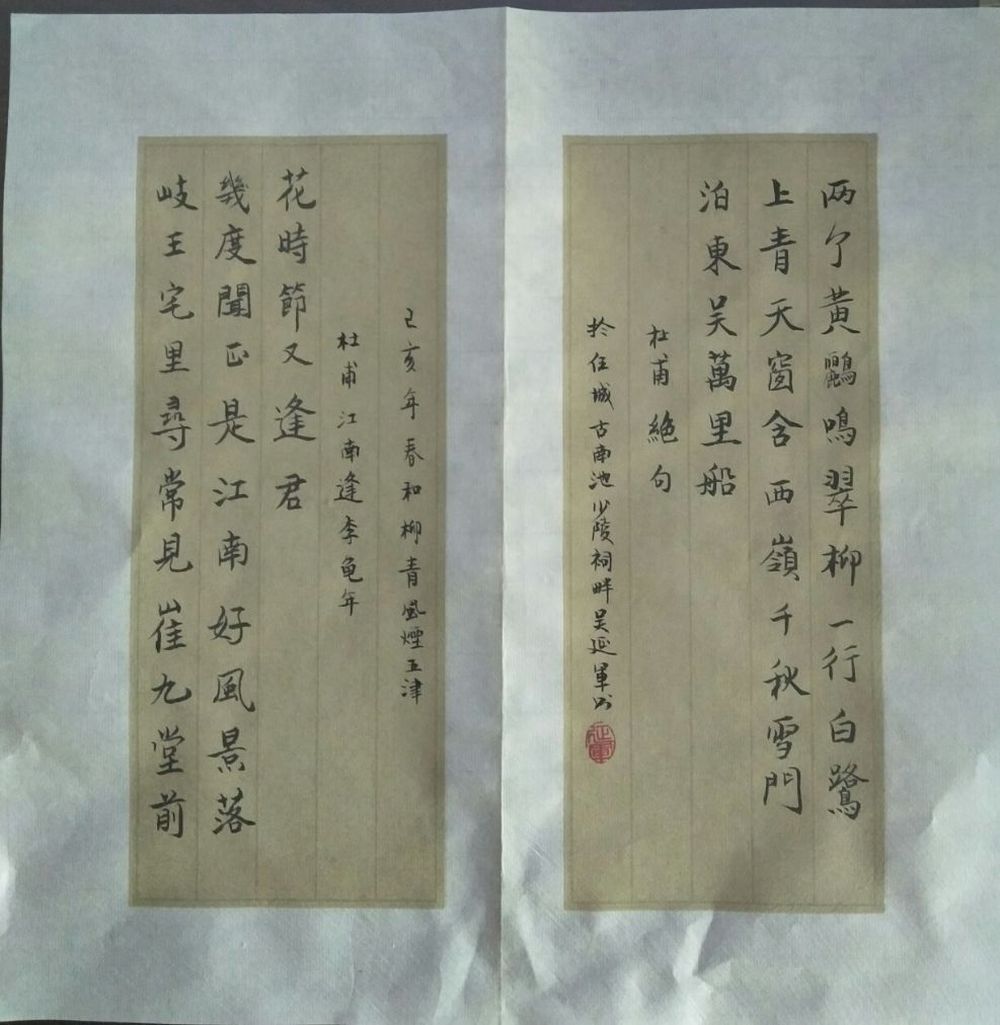 两个黄鸝鳴翠柳一行白鷺
上青天窗含西嶺千秋雪門
泊東吴萬里船
杜甫絶句
於任城古南池少陵祠畔吴延軍书
延軍
岐王宅里尋常見崔九堂前
幾度聞正是江南好風景落
花時節又逢君
杜甫江南逢李龟年
己亥年春和柳青風煙五津